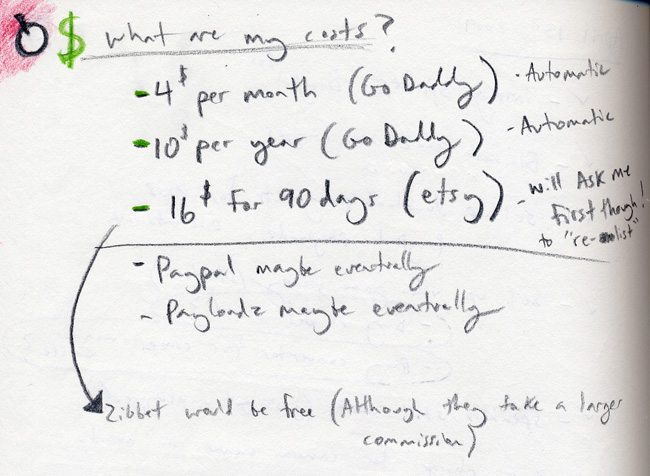 $ what are my costs?
- 4$ per month (Go Daddy) - Automatic
- 10$ per year (Go Daddy) - Automatic
- 16$ for 90 days (etsy) - will Ask me
first though!
to "re-list"
- Paypal maybe eventually
- Payloadz maybe eventually
Zibbet would be free (Although they take a larger
commission)